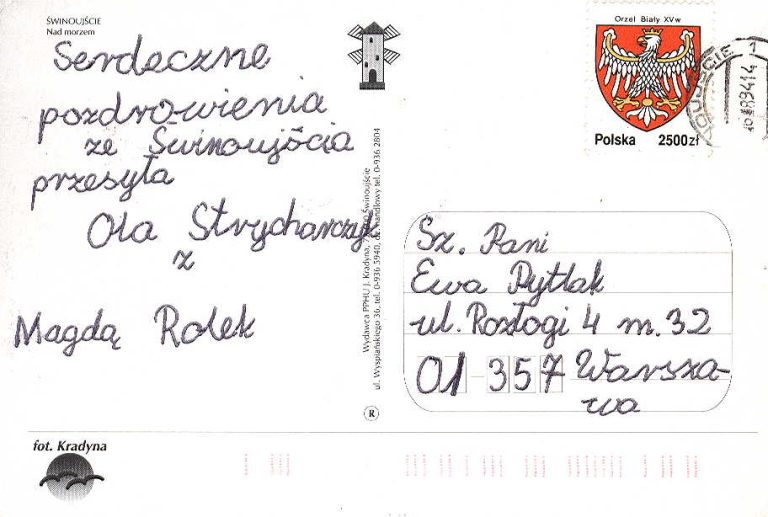 ŚWINOUJŚCIE
Nad morzem
Serdeczne
pozdrowienia
ze Świnoujścia
przesyła
Ola Strycharczyk
z
Magdą Rolek
fot. Kradyna
Wydawca PPHU J. Kradyna, Świnoujście
ul. Wyspiańskiego 36, tel. 0-936 5940, handlowy tel. 0-936 2804
R
Orzeł Biały XV w
Polska 2500 zł
Sz. Pani
Ewa Pytlak
ul. Rozłogi 4 m. 32
01-357 Warsza-
wa